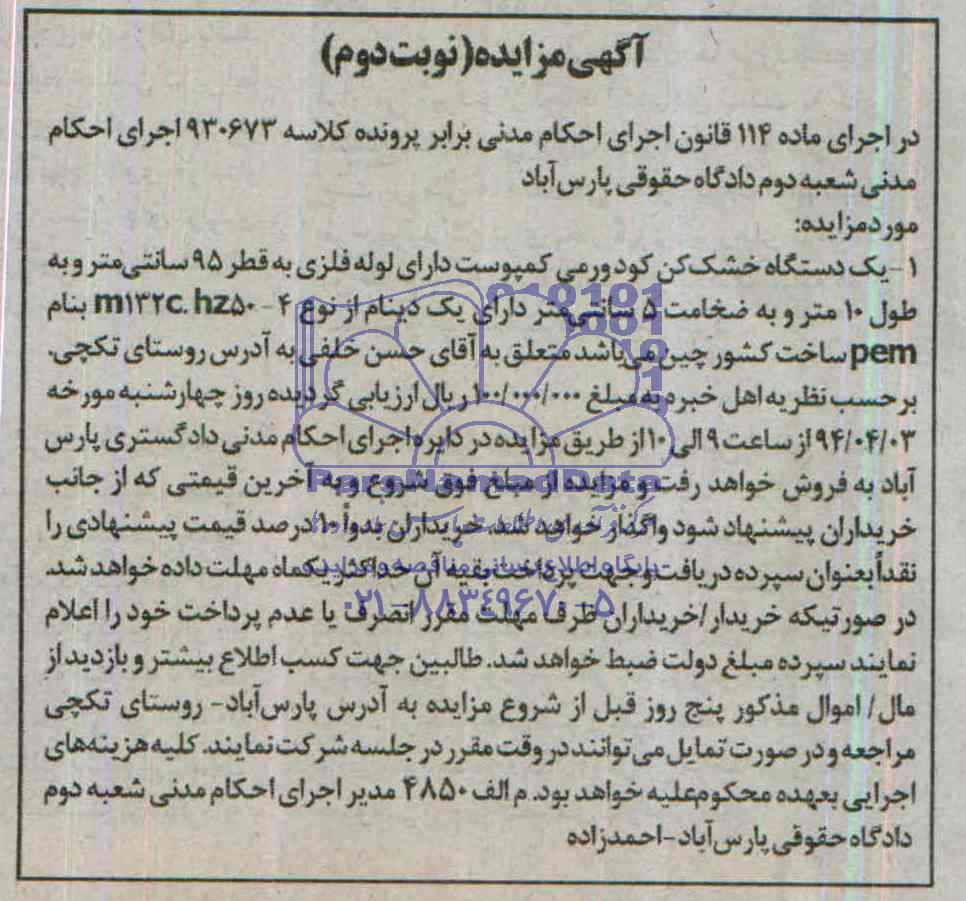 آگهی مزایده (نوبت دوم)
در اجرای ماده ۱۱۴ قانون اجرای احکام مدنی برابر پرونده کلاسه ۹۳۰۶۷۳ اجرای احکام
مدنی شعبه دوم دادگاه حقوقی پارس‌آباد
مورد مزایده:
۱- یک دستگاه خشک‌کن کود ورمی کمپوست دارای لوله فلزی به قطر ۹۵ سانتی‌متر و به
طول ۱۰ متر و به ضخامت ۵ سانتی‌متر دارای یک دینام از نوع ۴ - m۱۳۲c. hz۵۰ بنام
pem ساخت کشور چین می‌باشد متعلق به آقای حسن خلفی به آدرس روستای تکچی.
برحسب نظریه اهل خبره به مبلغ ۱۰۰/۰۰۰/۰۰۰ ریال ارزیابی گردیده روز چهارشنبه مورخه
۹۴/۰۴/۰۳ از ساعت ۹ الی ۱۰ از طریق مزایده در دایره اجرای احکام مدنی دادگستری پارس
آباد به فروش خواهد رفت و مزایده از مبلغ فوق شروع و به آخرین قیمتی که از جانب
خریداران پیشنهاد شود واگذار خواهد شد. خریداران بدواً ۱۰ درصد قیمت پیشنهادی را
نقداً بعنوان سپرده دریافت و جهت پرداخت بقیه آن حداکثر یکماه مهلت داده خواهد شد.
در صورتیکه خریدار/خریداران ظرف مهلت مقرر انصرف یا عدم پرداخت خود را اعلام
نمایند سپرده مبلغ دولت ضبط خواهد شد. طالبین جهت کسب اطلاع بیشتر و بازدید از
مال/ اموال مذکور پنج روز قبل از شروع مزایده به آدرس پارس‌آباد- روستای تکچی
مراجعه و در صورت تمایل می‌توانند در وقت مقرر در جلسه شرکت نمایند. کلیه هزینه‌های
اجرایی بعهده محکوم‌علیه خواهد بود. م الف ۴۸۵۰ مدیر اجرای احکام مدنی شعبه دوم
دادگاه حقوقی پارس‌آباد-احمدزاده
پایگاه اطلاع رسانی مناقصه و مزایده
۰۲۱-۸۸۳۴۹۶۷۰-۵